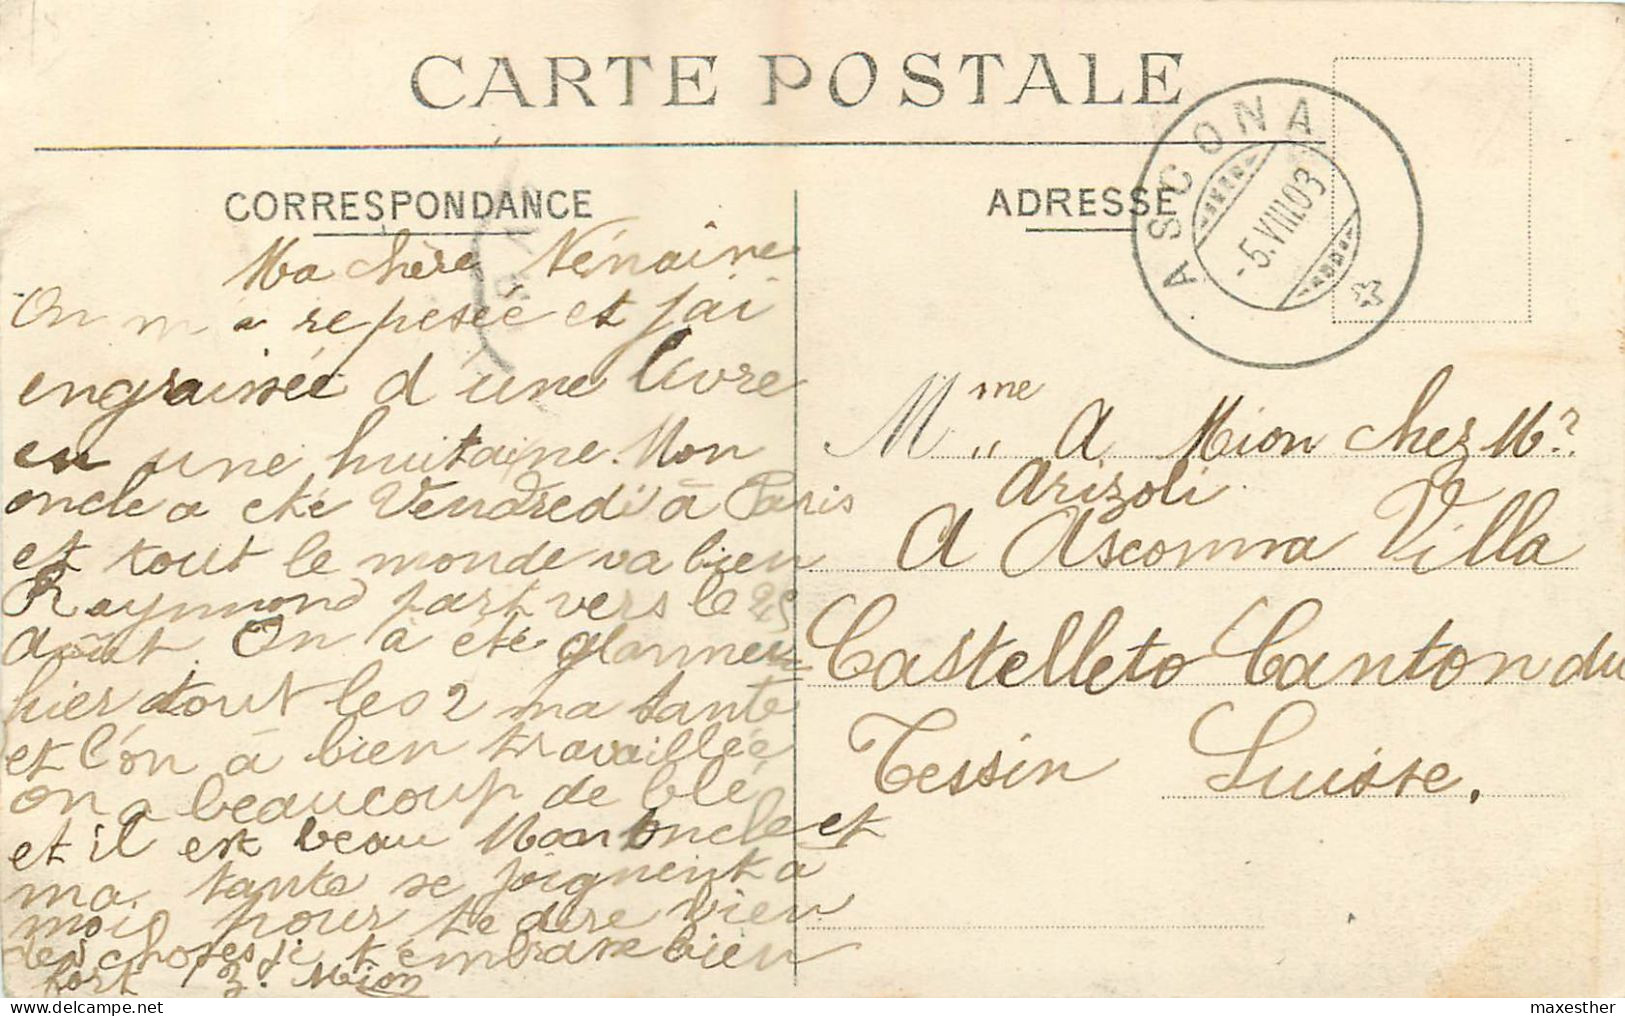 CARTE POSTALE
CORRESPONDANCE
Ma chère Nénaine
On m a repesée et jai
engraissée d'une livre
en une huitaine. Mon
oncle a été Vendredi à Paris
et tout le monde va bien
Raymond part vers le 25
août. On à été glanner
hier tout les 2 ma tante
et l'on à bien travaillée
on a beaucoup de blé
et il est beau Mon oncle et
ma tante se joignent a
moi pour te dire bien
des choses je t'embrasse bien
fort Mion
ADRESSE
ASCONA
-5.VIII.03
Mme A Mion chez Mr
Arizoli
A Asconna Villa
Castelleto Canton du
Tessin Suisse.
maxesther